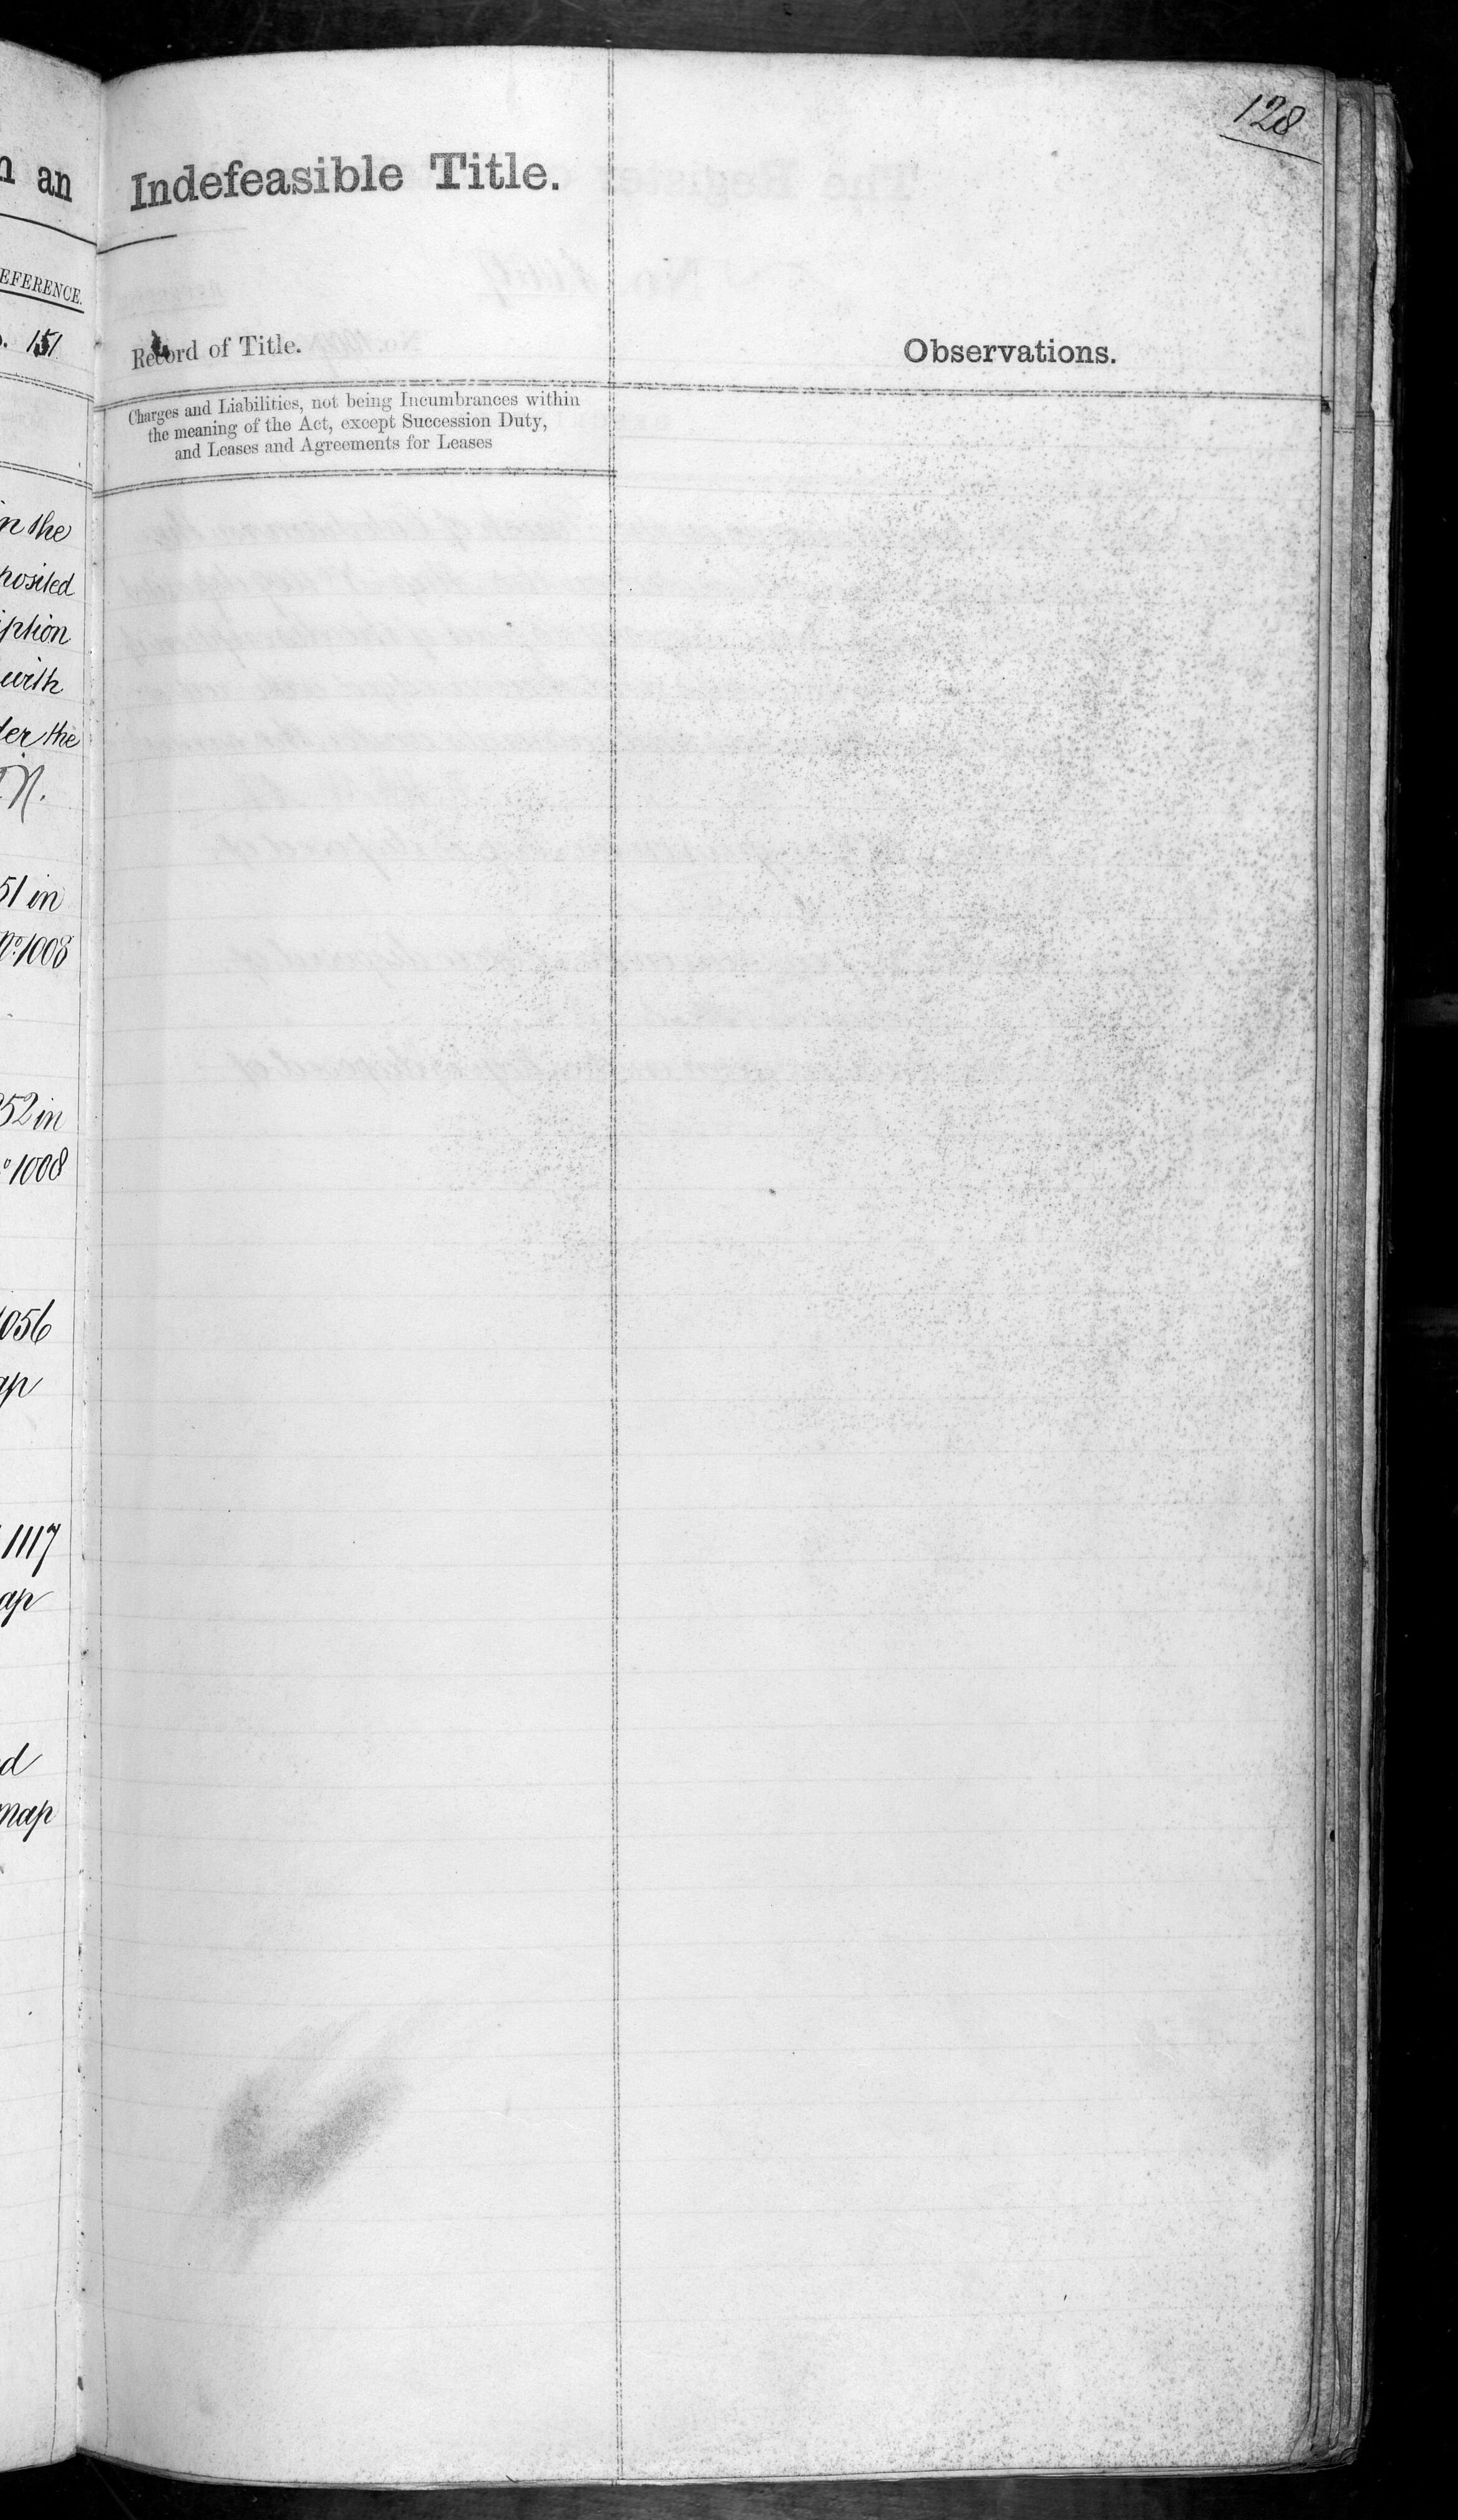 128
n an
Indefeasible Title.
EFERENCE.
. 151
Record of Title.
Observations.
Charges and Liabilities, not being Incumbrances within
the meaning of the Act, except Succession Duty,
and Leases and Agreements for Leases
n the
posited
iption
with
der the
51 in
No 1008
52 in
o 1008
1056
ap
1117
ap
d
map